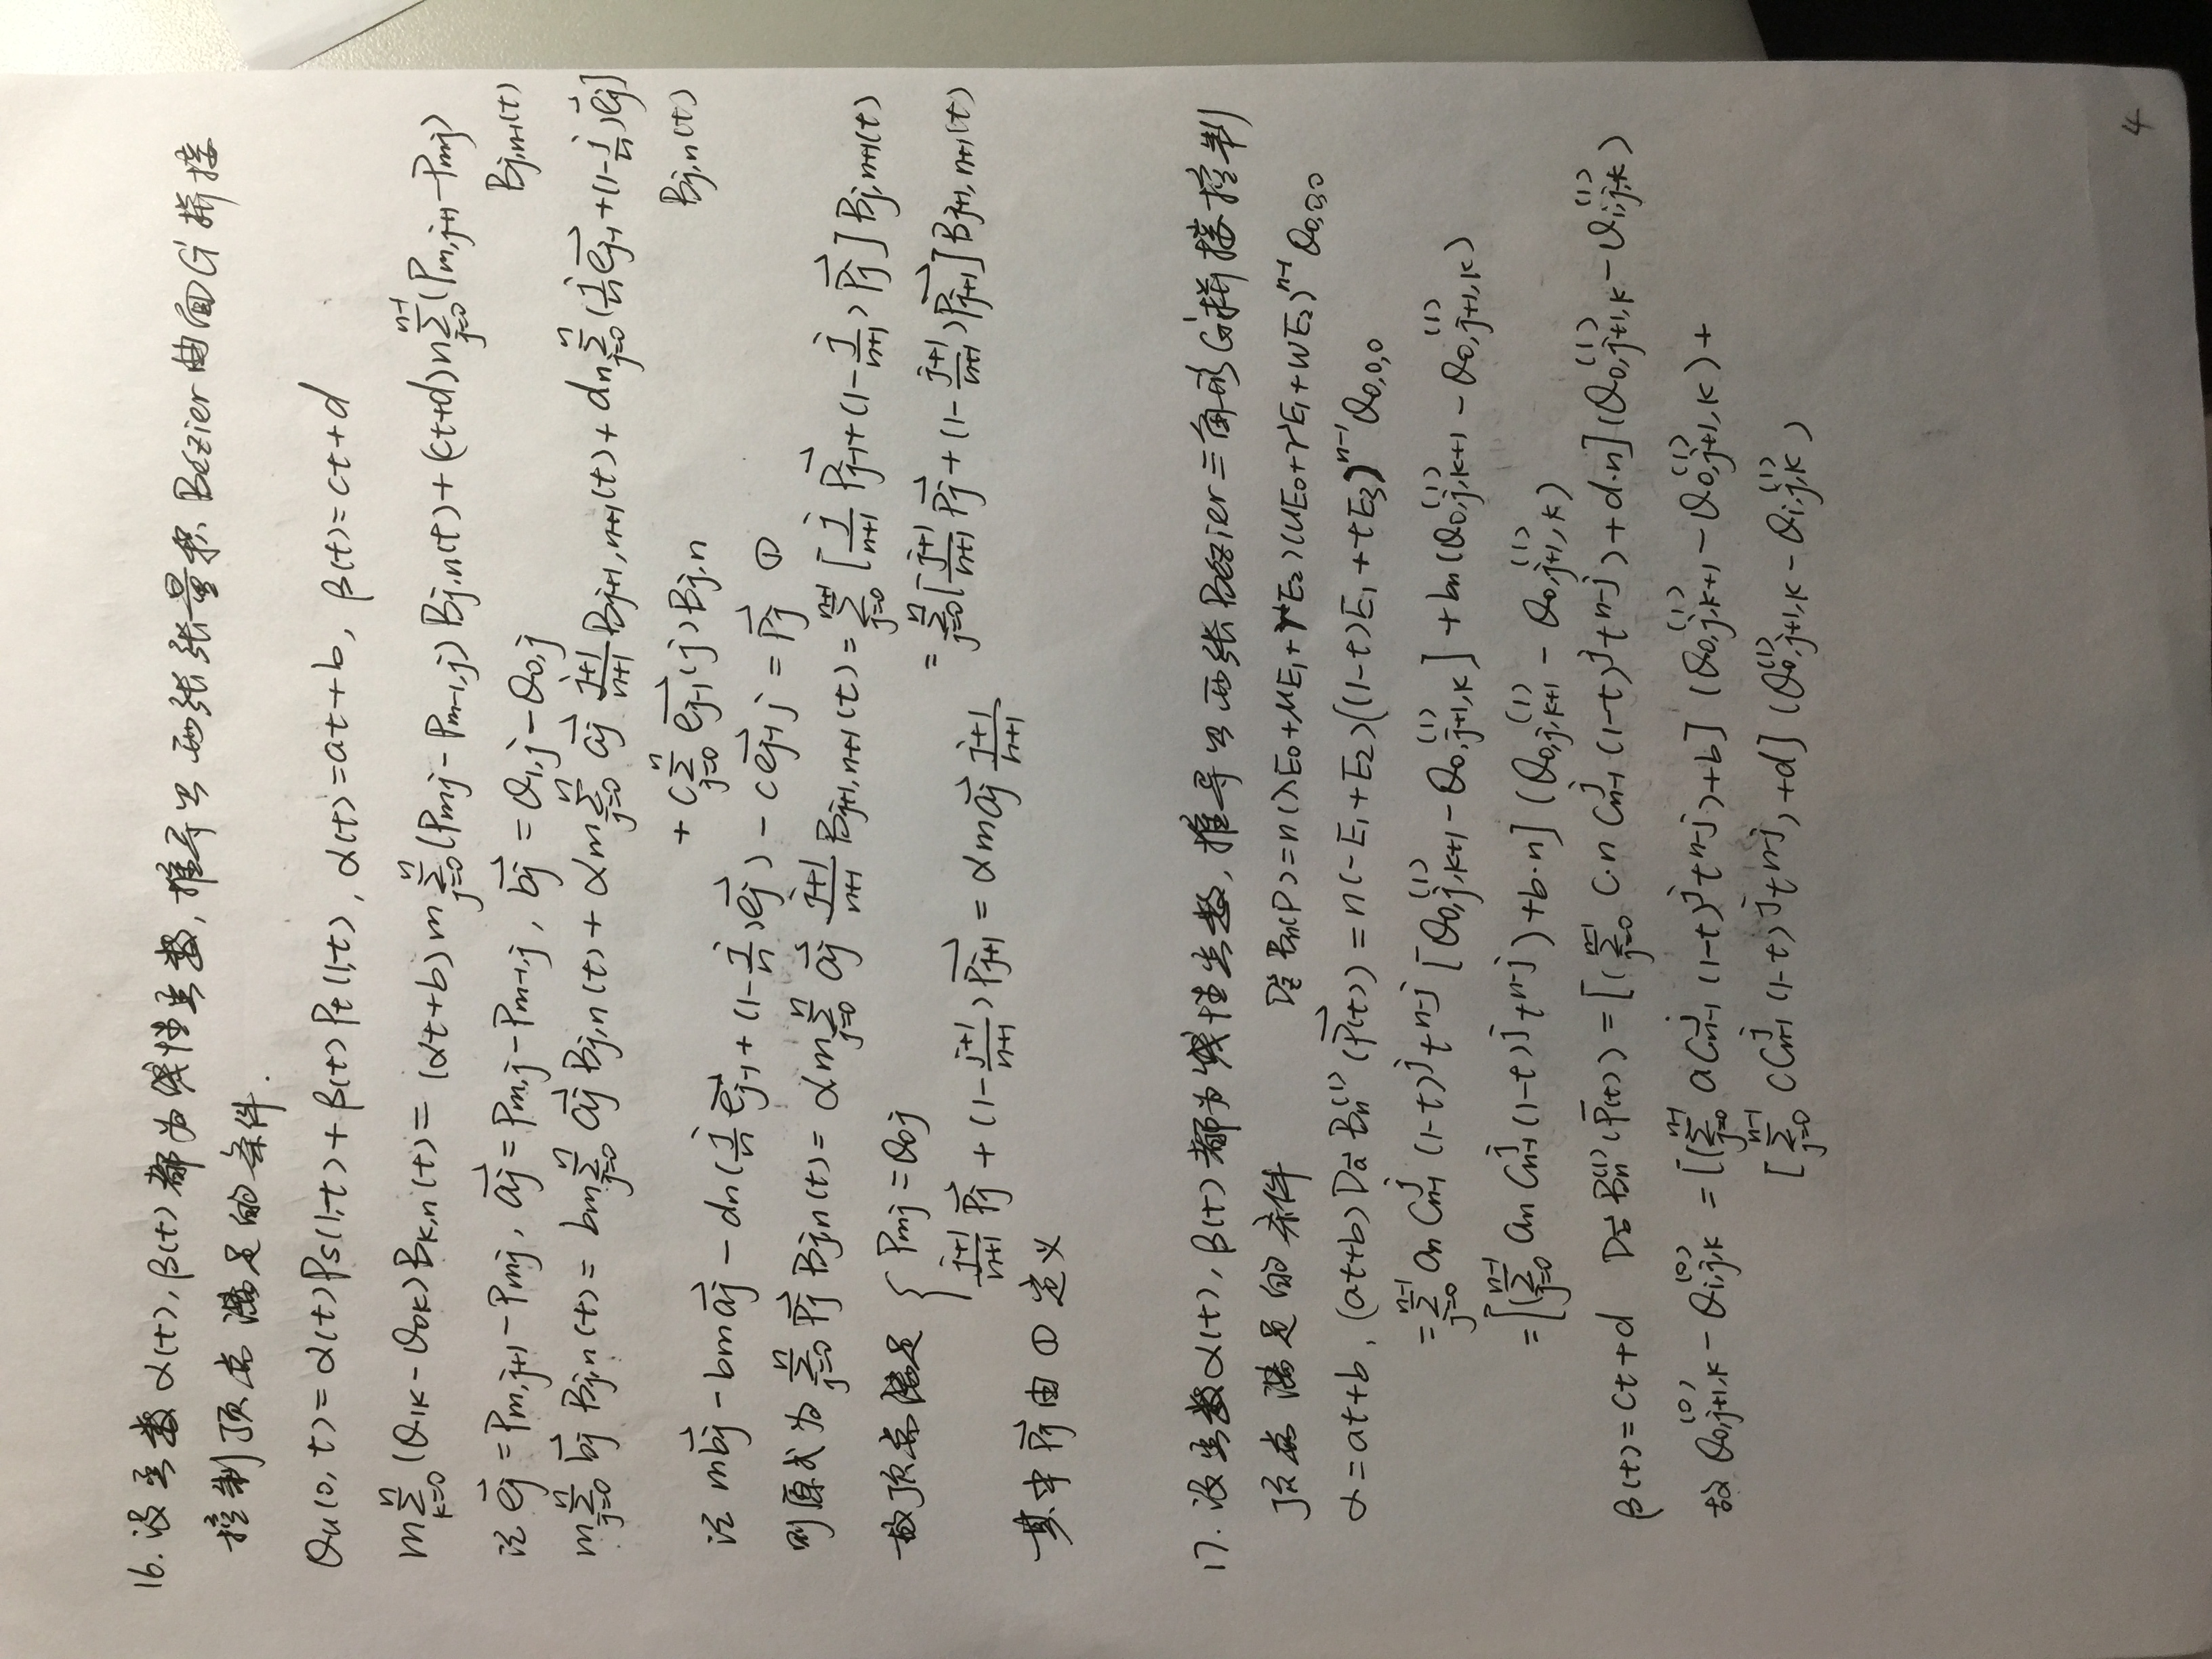 16. 设函数 α(t), β(t) 都为线性函数, 推导出两张张量积 Bézier 曲面 G¹ 拼接
控制顶点满足的条件.
Qu(0, t) = α(t) Ps(1,t) + β(t) Pt(1,t), α(t) = at+b, β(t) = ct+d
m∑_{k=0}^{n} (Q_{1k} - Q_{0k}) B_{k,n}(t) = (αt+b) m∑_{j=0}^{n} (P_{mj} - P_{m-1,j}) B_{j,n}(t) + (ct+d) n∑_{j=0}^{n-1} (P_{m,j+1} - P_{mj})
B_{j,n-1}(t)
记 \vec{e_j} = P_{m,j+1} - P_{mj}, \vec{a_j} = P_{m,j} - P_{m-1,j}, \vec{b_j} = Q_{1,j} - Q_{0,j}
m∑_{j=0}^{n} \vec{b_j} B_{j,n}(t) = bm∑_{j=0}^{n} \vec{a_j} B_{j,n}(t) + αm∑_{j=0}^{n} \vec{a_j} \frac{j+1}{n+1} B_{j+1,n+1}(t) + dn∑_{j=0}^{n} (\frac{j}{n} \vec{e_{j-1}} + (1-\frac{j}{n}) \vec{e_j}]
B_{j,n}(t)
+ c∑_{j=0}^{n} \vec{e_{j-1}} (j) B_{j,n}
记 m\vec{b_j} - bm\vec{a_j} - dn(\frac{j}{n} \vec{e_{j-1}} + (1-\frac{j}{n}) \vec{e_j}) - c\vec{e_{j-1}} j = \vec{P_j} ①
则原式为 ∑_{j=0}^{n} \vec{P_j} B_{j,n}(t) = αm∑_{j=0}^{n} \vec{a_j} \frac{j+1}{n+1} B_{j+1,n+1}(t) = ∑_{j=0}^{n+1} [\frac{j}{n+1} \vec{P_{j-1}} + (1-\frac{j}{n+1}) \vec{P_j}] B_{j,n+1}(t)
= ∑_{j=0}^{n} [\frac{j+1}{n+1} \vec{P_j} + (1-\frac{j+1}{n+1}) \vec{P_{j+1}}] B_{j+1,n+1}(t)
故顶点满足 { P_{mj} = Q_{0j}
\frac{j+1}{n+1} \vec{P_j} + (1-\frac{j+1}{n+1}) \vec{P_{j+1}} = αm\vec{a_j} \frac{j+1}{n+1}
其中 \vec{P_j} 由 ① 定义
17. 设函数 α(t), β(t) 都为线性函数, 推导出两张 Bézier 三角形 G¹ 拼接控制
顶点满足的条件 D_{\vec{z}} B_n(P) = n(λE_0 + μE_1 + γE_2)(uE_0 + rE_1 + wE_2)^{n-1} Q_{0,0,0}
α = at+b, (at+b) D_{\vec{a}} B_n^{(1)} (\vec{P(t)}) = n(-E_1 + E_2)((1-t)E_1 + tE_3)^{n-1} Q_{0,0,0}
= ∑_{j=0}^{n-1} an C_{n-1}^{j} (1-t)^j t^{n-j} [Q_{0,j,k+1}^{(1)} - Q_{0,j+1,k}^{(1)}] + bn (Q_{0,j,k+1}^{(1)} - Q_{0,j+1,k}^{(1)})
= [(∑_{j=0}^{n-1} an C_{n-1}^{j} (1-t)^j t^{n-j}) + b·n] (Q_{0,j,k+1}^{(1)} - Q_{0,j+1,k}^{(1)})
β(t) = ct+d D_{\vec{b}} B_n^{(1)} (\bar{P}(t)) = [(∑_{j=0}^{n-1} c·n C_{n-1}^{j} (1-t)^j t^{n-j}) + d·n] (Q_{0,j+1,k}^{(1)} - Q_{i,j,k}^{(1)})
故 Q_{0,j+1,k}^{(0)} - Q_{i,j,k}^{(0)} = [(∑_{j=0}^{n-1} a C_{n-1}^{j} (1-t)^j t^{n-j}) + b] (Q_{0,j,k+1}^{(1)} - Q_{0,j+1,k}^{(1)}) +
[∑_{j=0}^{n-1} c C_{n-1}^{j} (1-t)^j t^{n-j}) + d] (Q_{0,j+1,k}^{(1)} - Q_{i,j,k}^{(1)})
4